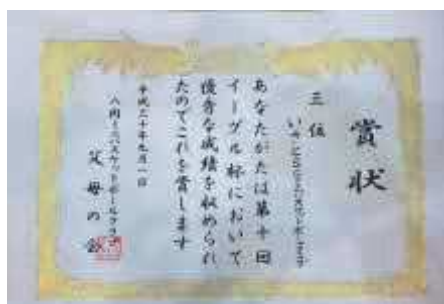 賞状
三位
ミニバスケットボールクラブ
あなたがたは第十回
イーグル杯において
優秀な成績を収められ
たのでこれを賞します
平成三十年九月一日
八同ミニバスケットボールクラブ
父母の会